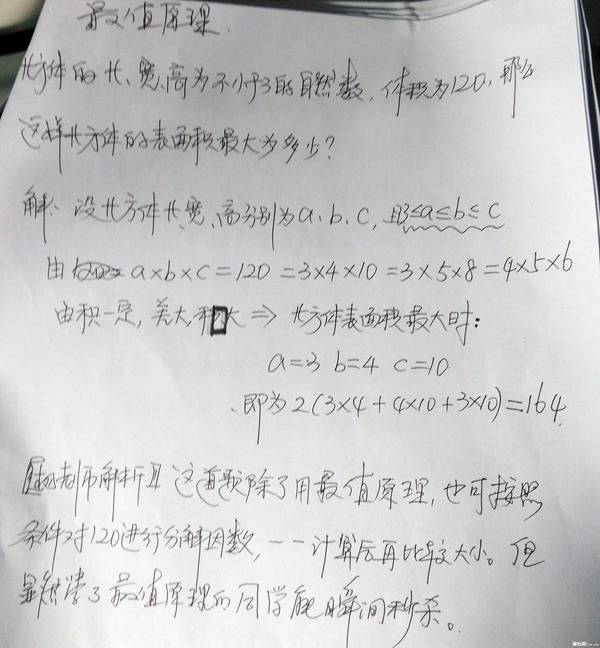 最值原理
长方体的长、宽、高为不小于3的自然数,体积为120,那么
这样长方体的表面积最大为多少?
解:设长方体长、宽、高分别为a、b、c,且3≤a≤b≤c
由 a×b×c=120=3×4×10=3×5×8=4×5×6
由积一定,差大,和大⇒长方体表面积最大时:
a=3 b=4 c=10
即为2(3×4+4×10+3×10)=164
老师解析】这道题除了用最值原理,也可按照
条件对120进行分解因数,一一计算后再比较大小。但
显然学了最值原理的同学能瞬间秒杀。